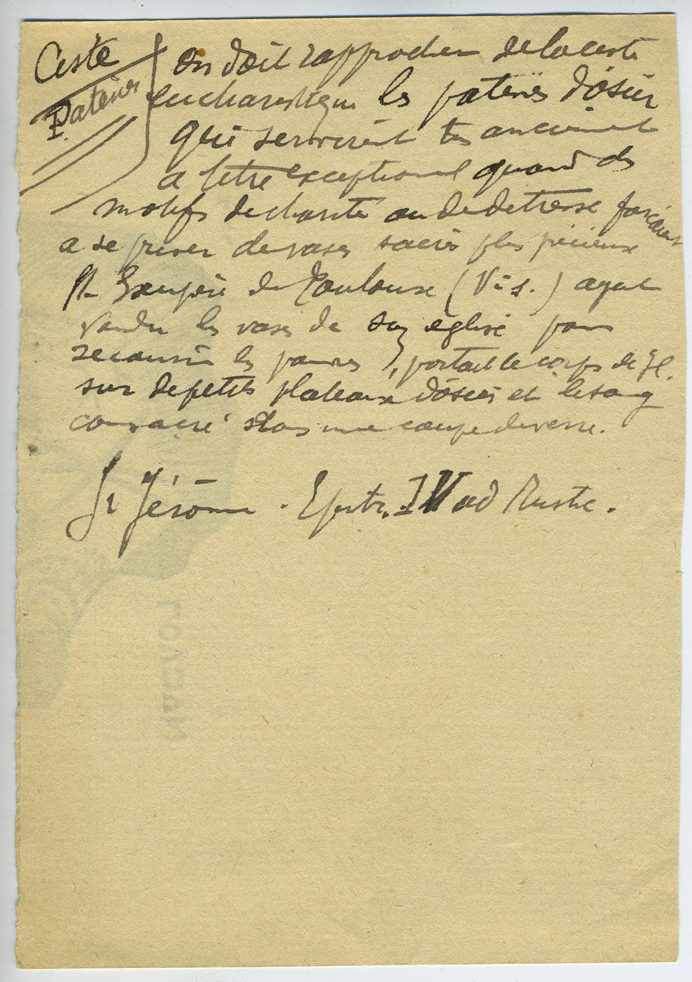 Ciste
Patènes
On doit rapprocher de la ciste
eucharistique les patènes d'osier
qui servirent très anciennement
à titre exceptionnel quand des
motifs de charité ou de détresse forçaient
à se priver de vases sacrés plus précieux
St Exupère de Toulouse (Ve s.) ayant
vendu les vases de son église pour
secourir les pauvres, portait le corps de
sur de petits plateaux d'osier et le sang
consacré dans une coupe de verre.
St Jérôme . Epist. IV ad Rustic.